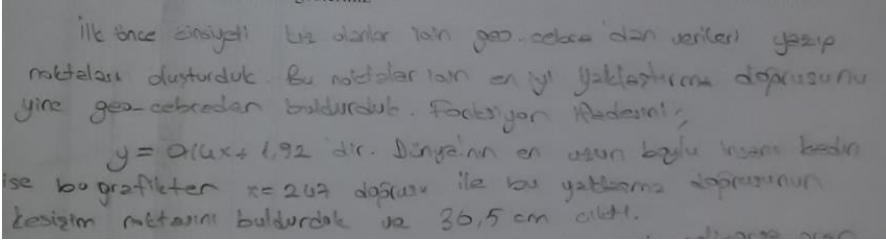 ilk önce cinsiyeti kız olanlar için geo-cebra'dan verileri yazıp
noktaları oluşturduk. Bu noktalar için en iyi yaklaştırma doğrusunu
yine geo-cebradan buldurduk. Fonksiyon ifadesini;
y = 0,14x + 1,92 dir. Dünya'nın en uzun boylu insanı kadın
ise bu grafikten x = 247 doğrusu ile bu yaklaşma doğrusunun
kesişim noktasını buldurduk ve 36,5 cm çıktı.